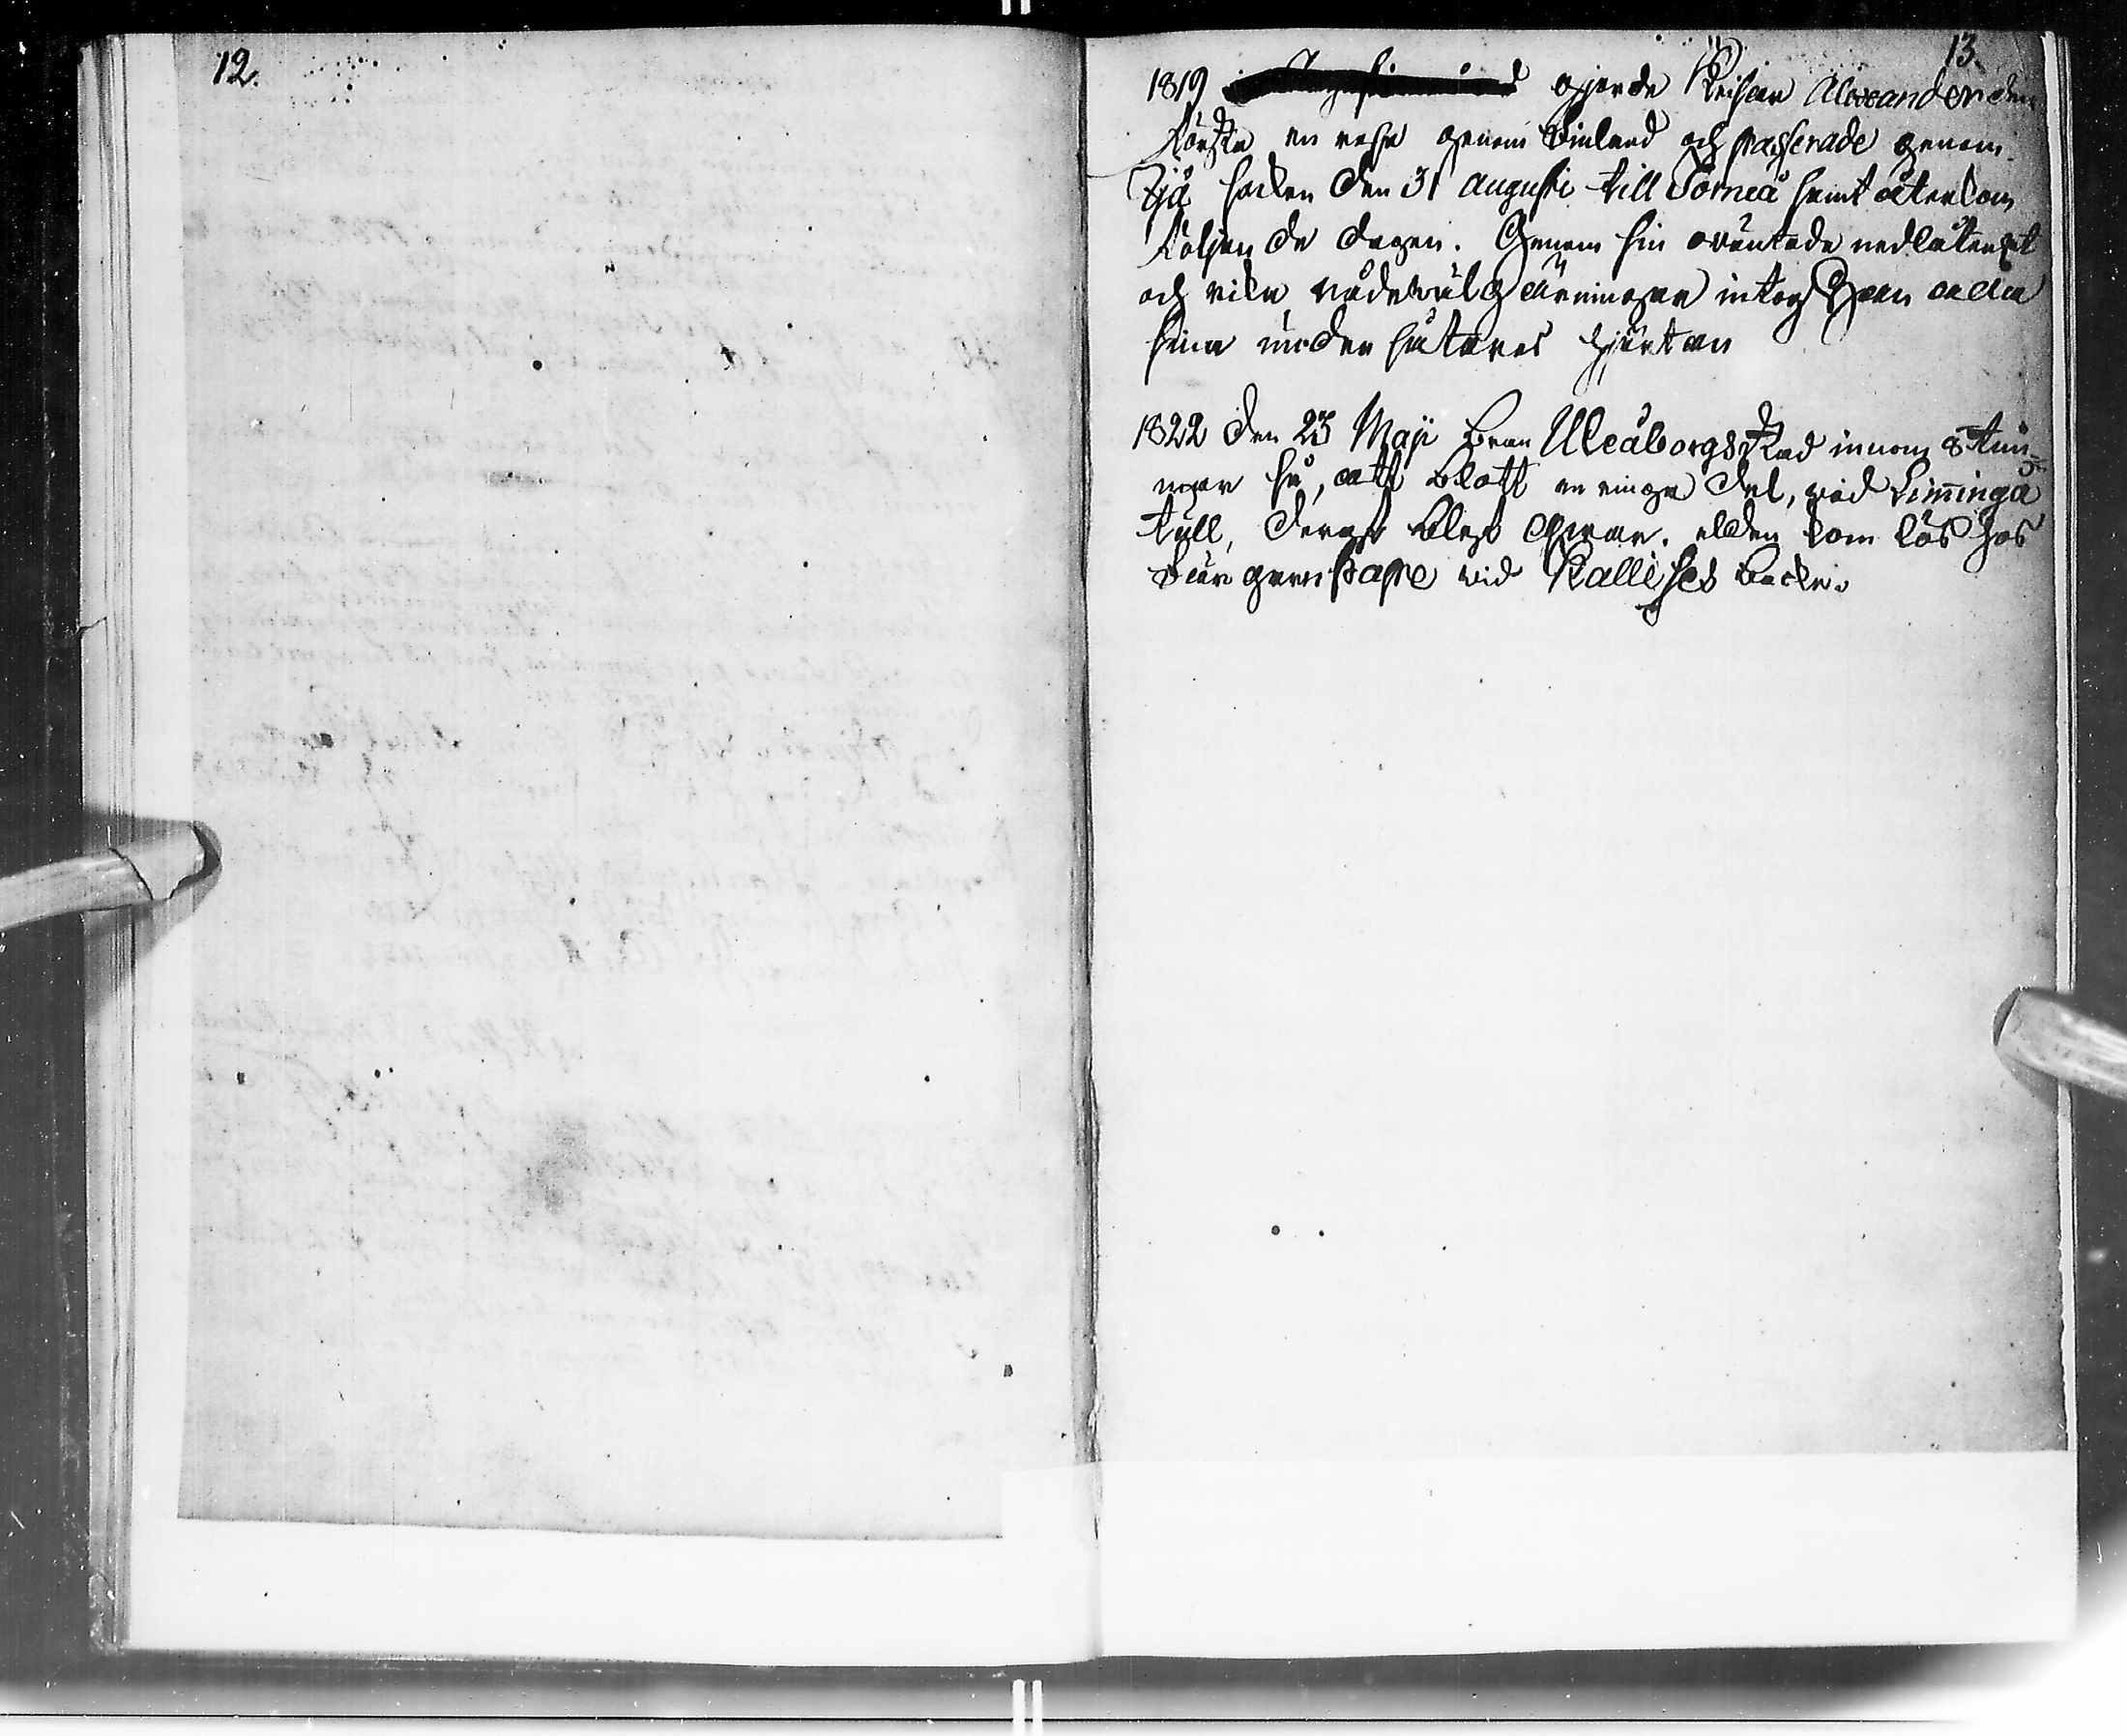 12.
13.
1819 gjorde Keisar Alexander den
Första en resa genom Finland och passerade genom
Ijå socken den 31 augusti till Torneå samt återkom
följande dagen. Genom sin oväntade nedlåtenhet
och rika nådewälgärningar intog Han alla
sina undersåtares hjertan
1822 den 23 Maji bran Uleåborgs Stad innom 8 tim-
mar så, att blott en ringa del, wid Liminga
tull, deraf blef qwar. elden kom lös hos
wid Kallises backe.